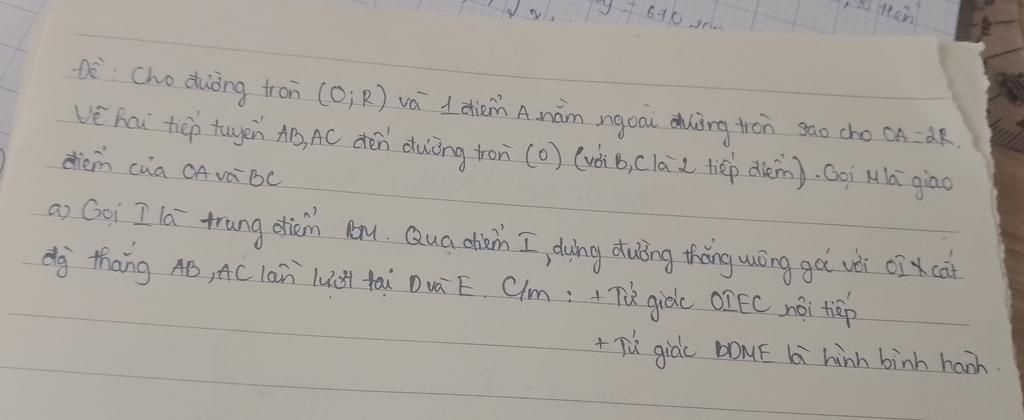 y = 640
Đề: Cho đường tròn (O;R) và 1 điểm A nằm ngoài đường tròn sao cho OA=2R.
Vẽ hai tiếp tuyến AB,AC đến đường tròn (O) (với B,C là 2 tiếp điểm). Gọi M là giao
điểm của OA và BC
a) Gọi I là trung điểm BM. Qua điểm I, dựng đường thẳng vuông góc với OI & cắt
đg thẳng AB, AC lần lượt tại D và E. C/m: + Tứ giác OIEC nội tiếp
+ Tứ giác BDME là hình bình hành.